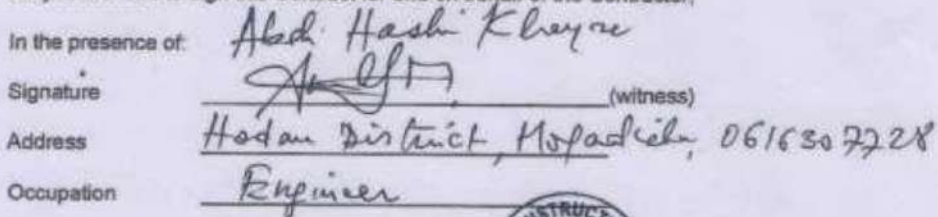 In the presence of: Abdi Hashi Kheyre
Signature (witness)
Address Hodan District, Mogadishu, 0616307728
Occupation Engineer